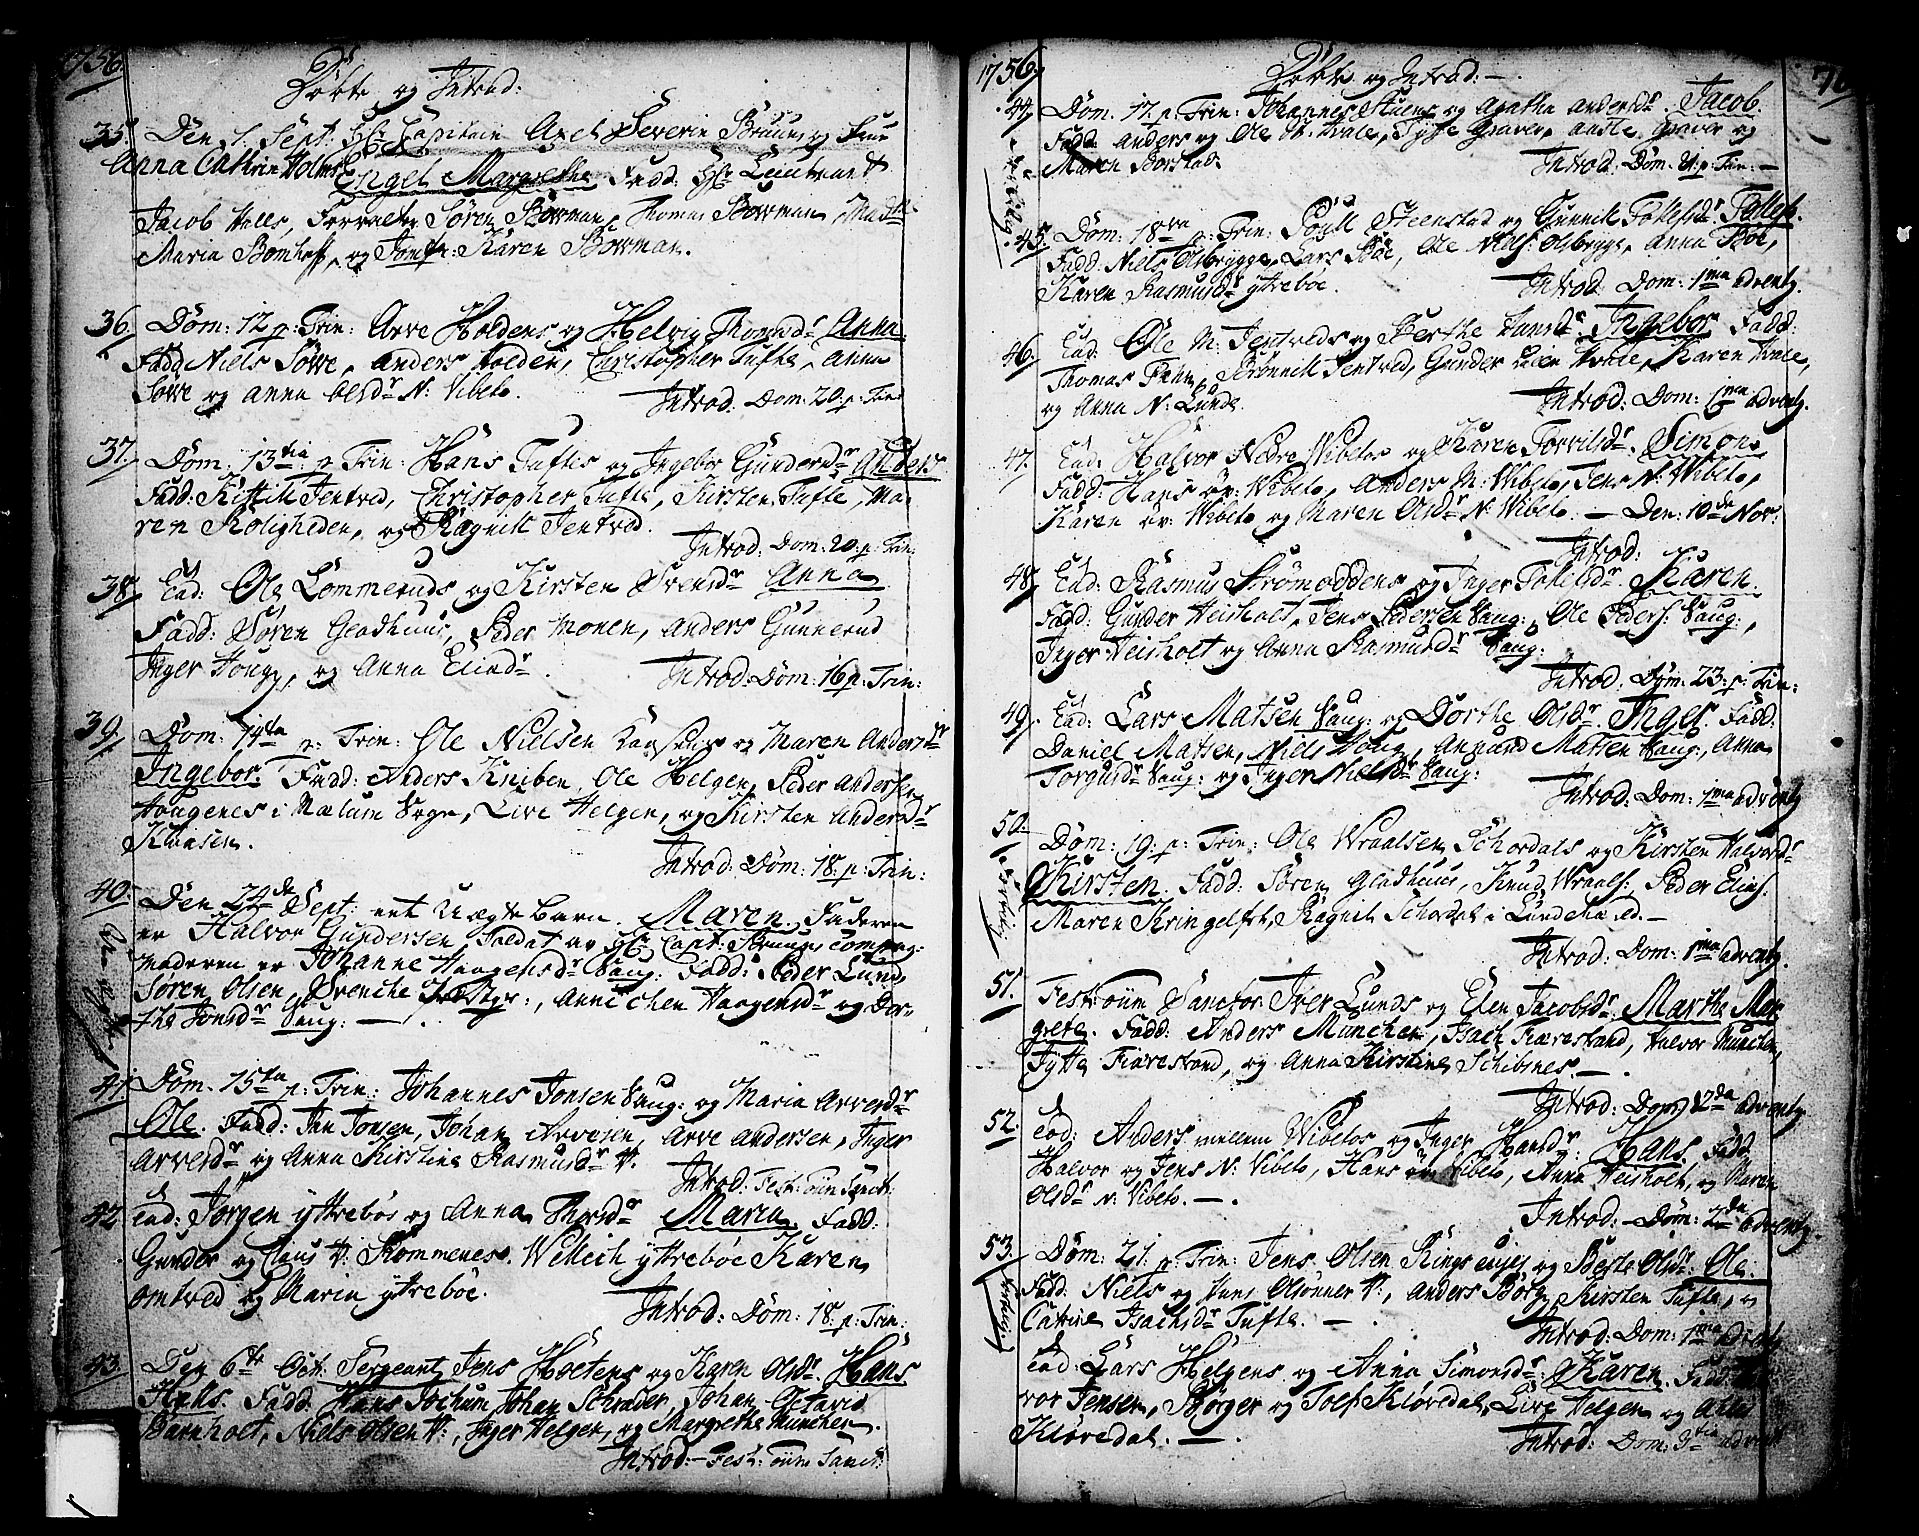 1756.
Döbte og Introd:
35. Den 1. Sept: Hr Capitain Axel Severin Bruun og Frue
Anna Cathrin Holms Engel Margrethe Fadd: Hr Lieutenant
Jacob Halls, Forvalter Sören Bowman, Thomas Bowman, Mad
Maria Bomhoff, og Jomfr: Karen Bowman.
36. Dom: 12 p: Trin: Arve Holdens og Helvig Thomasdr Anna
Fadd Niels Söwe, Anders Holden, Christopher Tufte, Anna
Söwe og Anna Olsdr N: Vibeto. Introd: Dom: 20. p: Trin
37. Dom. 13tia p: Trin: Hans Tuftes og Ingebor Gundersdr Anders
Fadd: Kittil Jentved, Christopher Tufte, Kirsten Tufte, Ma-
ren Roligheden, og Ragnild Jentved.
Introd: Dom. 20. p: Trin:
38. Ead: Ole Lommeruds og Kirsten Svensdr Anna
Fadd: Sören Gladhuus, Peder Monen, Anders Gunnerud
Inger Houg, og Anna Eliasdr. Introd: Dom: 16 p: Trin:
39. Dom: 14ta p: Trin: Ole Nielsen og Maren Andersdr
Ingebor. Fadd: Anders Kniben, Ole Helgen, Peder Andersen
Hougenes i Mælum Sogn, Live Helgen, og Kirsten Andersdr
Introd: Dom: 18. p: Trin:
40. Den 24de Sept: ert Uægte Barn. Maren Faderen
er Halvor Gundersen, Soldat av Hr Capt: Bruuns Compag:
moderen er Johanne Haagensdr Saug: Fadd: Peder Lund,
Sören Olsen, Drenche, Annichen Haagensdr og Dor-
the Jonsdr Saug:
41. Dom. 15ta p: Trin: Johannes Jonsen Saug: og Maria Arvesdr
Ole. Fadd: Jan Jonsen, Johan Arvesen, Arve Andersen, Inger
Arvesdr og Anna Kirstine Rasmusdr
Introd: Fest: oũm Sanct:
42. Ead: Jörgen Yttreböe og Anna Thorsdr Maren. Fadd:
Gunder og Claus Rommenes. Wettich Yttreböe Karen
Omtved og Maria Yttreböe.
Introd: Dom: 18. p: Trin:
43. Den 6te Oct: Sergeant Jens Holtens og Karen Olsdr Hans
Fadd. Hans Jochum, Johan Schrader, Johan Octavid
Barnholt, Niels Olsen, Inger Helgen, og Margrethe München
Introd: Fest: oũm Sanct:
1756.
Döbte og Introd:
44. Dom. 17. p: Trin: Johannes og Agatha Andersdr. Jacob
Fadd: Anders og Ole Hvale, Tÿge Graver, Aaste Graver og
Maren Borstad. Introd: Dom: 21. p: Trin:
45. Dom: 18va p: Trin: Poull Steenstad og Gunnild Tollefsdr. Tollef.
Fadd: Niels Olsbrygge, Lars Böe, Ole Nielss: Olsbrygge, Anna Böe,
Karen Rasmusdr Yttreböe. Introd: Dom: 1ma Advent.
46. Ead: Ole M: Jentveds og Berthe Hansdr: Ingebor Fadd:
Thomas, Rönnild Jentved, Gunder Hvale, Karen Hvale,
og Anna N: Lunde. Introd: Dom: 1ma Advent.
47. Ead: Halvor Nedre Vibetos og Karen Torrilsdr. Simon
Fadd: Hans öv: Vibeto, Anders M: Vibeto, Jens N: Vibeto,
Karen öv: Vibeto og Maren Olsdr N: Vibeto. Den: 10de Nov:
Introd:
48. Ead: Rasmus Strömoddens og Inger Tollefsdr. Karen.
Fadd: Gunder Heisholt, Jens Pedersen Saug:, Ole Peders: Saug:,
Inger Heisholt og Anna Rasmusdr Saug:
Introd: Dom. 23. p: Trin:
49. Ead: Lars Matsen Saug: og Dorthe Olsdr. Inger. Fadd:
Daniel Matsen, Niels Houg, Amund Matsen Saug:, Anna
Torgusdr Saug: og Inger Nielsdr Saug:
Introd: Dom: 1ma Advent.
50. Dom: 19. p: Trin: Ole Wraalsen Schordals og Kirsten Halvorsdr
Kirsten. Fadd: Sören Gladhuus, Knud Wraals: Peder Elies:
Maren Kringelset, Ragnil Schordal i Lundehæred.
Introd: Dom: 1ma Advent.
51. Fest: oũm Sanctor: Iver Lunds og Elen Jacobsdr. Marthe Mar-
grete. Fadd: Anders München, Isach Fiærestrand, Halvor München,
Jytte Fiærestrand, og Anna Kirstine Schibsnes.
Introd: Dom: 2da Advent.
52. Ead: Anders mellem Vibetos og Inger Hansdr: Hans. Fadd:
Halvor og Jens N: Vibeto, Hans öv: Vibeto, Anna Heisholt, og Maren
Olsdr N: Vibeto.
Introd: Dom: 2da Advent.
53. Dom: 21. p: Trin: Jens Olsen og Berte Olsdr. Ole.
Fadd: Niels og Hans Olsönner, Anders Börg, Kirsten Tufte, og
Catrine Isachsdr Tufte.
Introd: Dom: 1ma Advent.
Ead: Lars Helgens og Anna Simonsdr: Karen. Fadd: Hal-
vor Jensen, Börger og Tolf Klövedal, Live Helgen og
Klövedal.
Introd: Dom: 3tia Advent